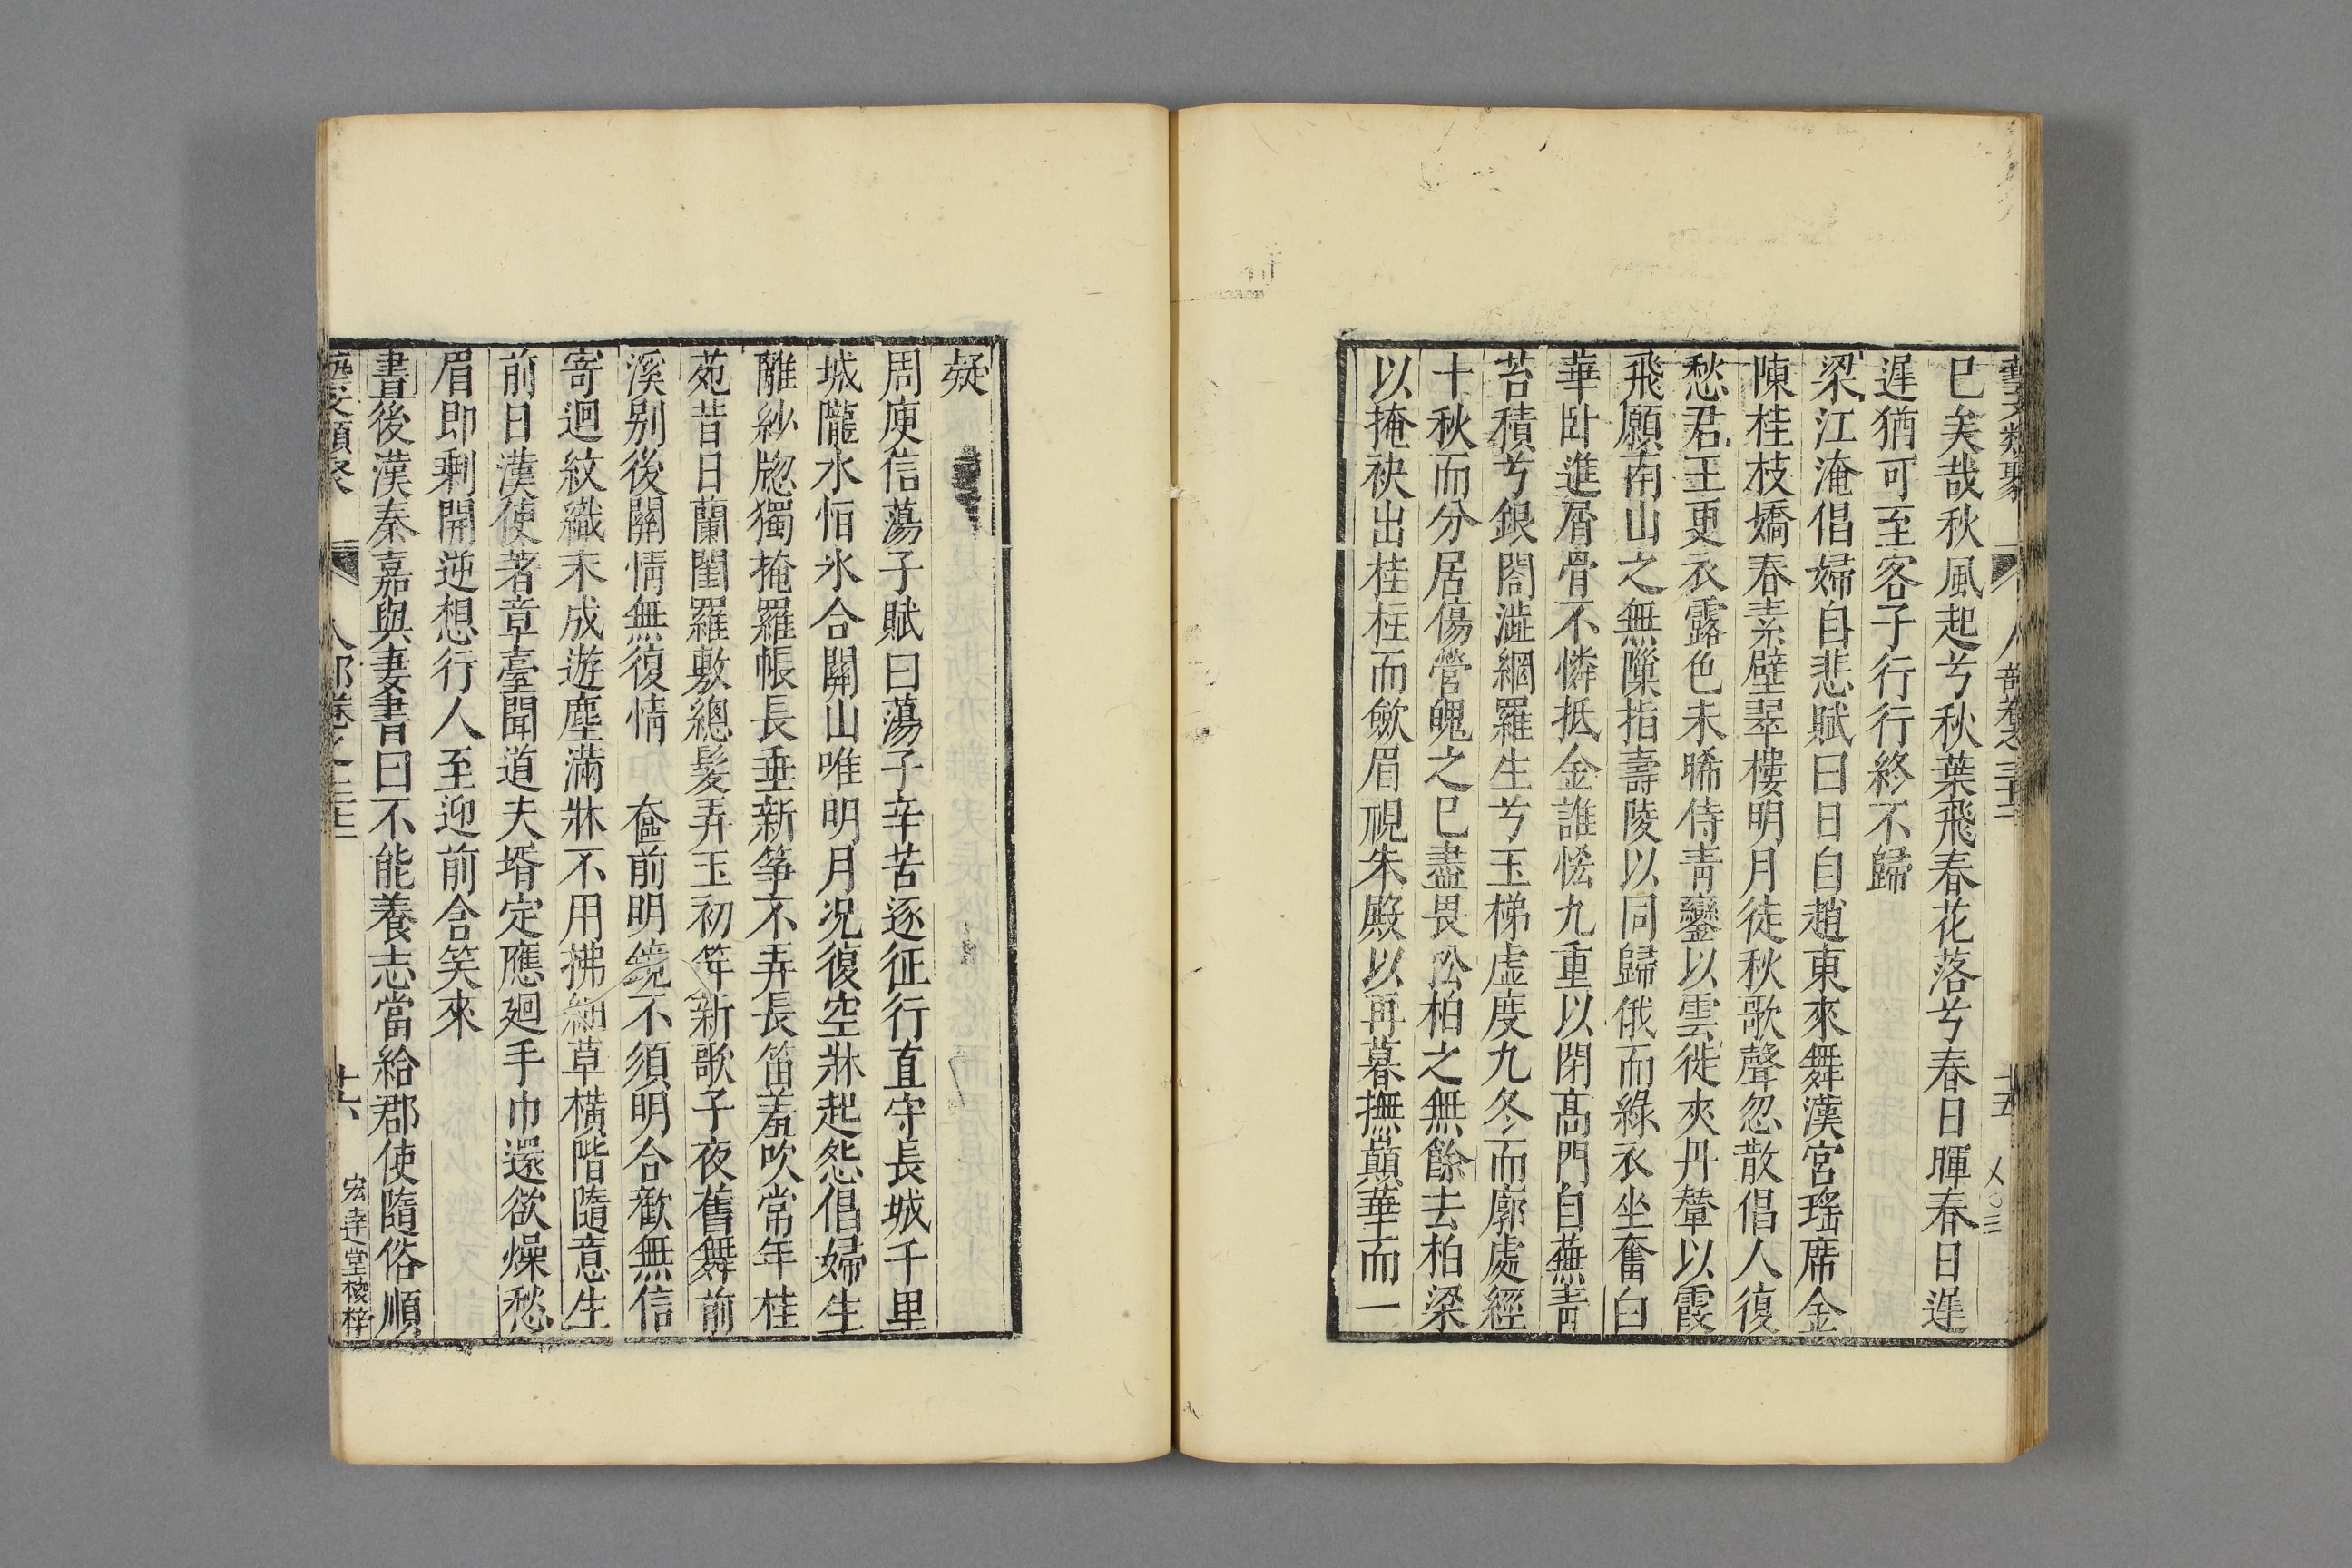 藝文類聚 人部卷之三十二 十五
已矣哉秋風起兮秋葉飛春花落兮春日暉春日遲
遲猶可至客子行行終不歸
梁江淹倡婦自悲賦曰日自趙東來舞漢宮瑤席金
陳桂枝嬌春素壁翠樓明月徒秋歌聲忽散倡人復
愁君王更衣露色未晞侍青鑾以雲徙夾丹輦以霞
飛願南山之無隟指壽陵以同歸俄而綠衣坐奮白
華卧進屑骨不憐抵金誰恡九重以閉高門自蕪青
苔積兮銀閣澁網羅生兮玉梯虛度九冬而廓處經
十秋而分居傷營魄之已盡畏松柏之無餘去柏梁
以掩袂出桂枉而歛眉視朱殿以再暮撫巔華而一
疑
周庾信蕩子賦曰蕩子辛苦逐征行直守長城千里
城隴水恒氷合關山唯明月况復空牀起怨倡婦生
離紗牕獨掩羅帳長垂新箏不弄長笛羞吹常年桂
苑昔日蘭閨羅敷總髮弄玉初笄新歌子夜舊舞前
溪别後關情無復情 奩前明鏡不須明合歡無信
寄迴紋織未成遊塵滿牀不用拂細草橫階隨意生
前日漢使著章臺聞道夫壻定應廻手巾還欲燥愁
眉即剩開逆想行人至迎前含笑來
書後漢秦嘉與妻書曰不能養志當給郡使隨俗順
藝文類聚 人部卷之三十二 十六 宏達堂棱梓